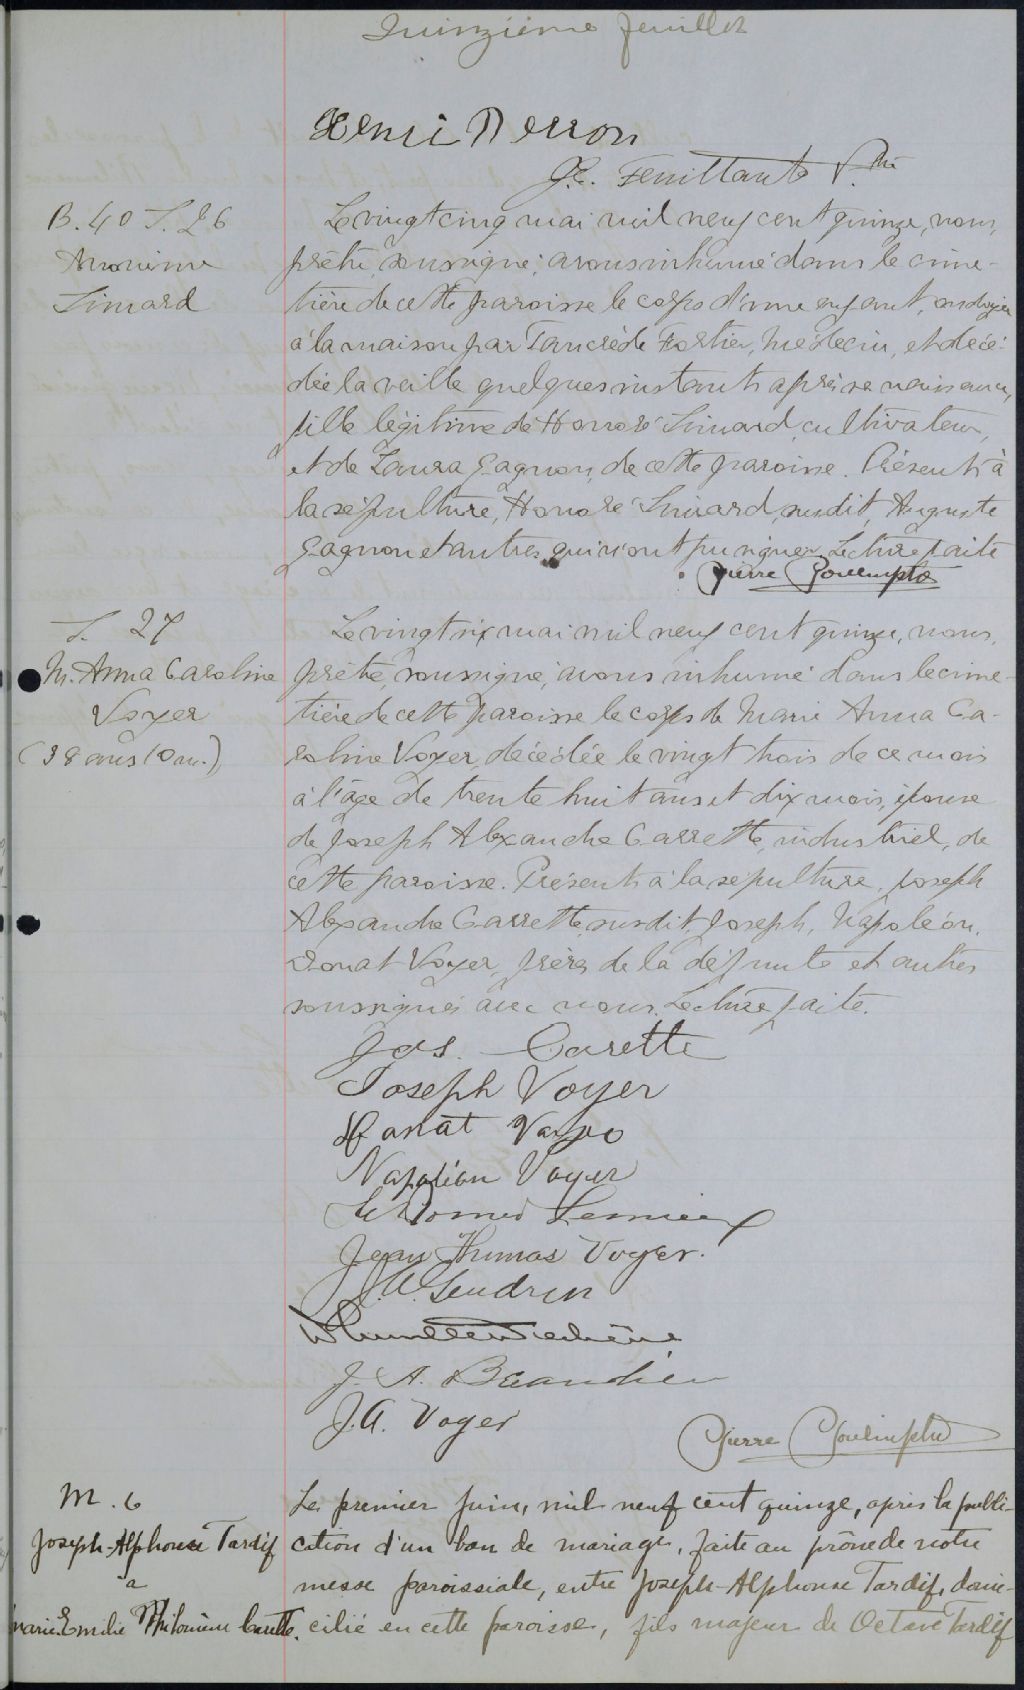 Quinzième feuillet
Henri Perron
J.E. Feuiltault Ptre
B. 40 S. 26
Anonime
Simard
Le vingt cinq mai mil neuf cent quinze, nous,
prêtre, soussigné, avons inhumé dans le cime-
tière de cette paroisse le corps d'une enfant, ondoyée
à la maison par Tancrède Fortier, médecin, et décé-
dée la veille quelques instants après sa naissance,
fille légitime de Honoré Simard, cultivateur,
et de Laura Gagnon, de cette paroisse. Présents à
la sépulture, Honoré Simard, susdit, Auguste
Gagnon et autres qui n'ont pu signer. Lecture faite
Pierre
S. 27
M. Anna Caroline
Voyer
(38 ans 10 m.)
Le vingt six mai mil neuf cent quinze, nous,
prêtre, soussigné, avons inhumé dans le cime-
tière de cette paroisse le corps de Marie Anna Ca-
roline Voyer, décédée le vingt trois de ce mois
à l'âge de trente huit ans et dix mois, épouse
de Joseph Alexandre Carrette, industriel, de
cette paroisse. Présents à la sépulture, Joseph
Alexandre Carrette, susdit, Joseph, Napoléon,
Donat Voyer, frères de la défunte et autres
soussignés avec nous. Lecture faite.
Jos. Carette
Joseph Voyer
Donat
Napoléon Voyer
Lemieux
Jean Thomas Voyer.
J.A. Gendron
J. A. Beaudin
J.A. Voyer
Pierre
M. 6
Joseph-Alphonse Tardif
a
Marie Emilie Philomène Carette.
Le premier juin, mil neuf cent quinze, après la publi-
cation d'un ban de mariage, faite au prône de notre
messe paroissiale, entre Joseph-Alphonse Tardif, domi-
cilié en cette paroisse, fils majeur de Octave Tardif